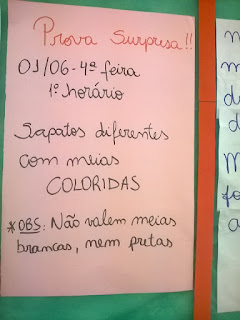 Prova Surpresa!!
01/06-4ª feira
1º horário
Sapatos diferentes
com meias
COLORIDAS
*OBS: Não valem meias
brancas, nem pretas